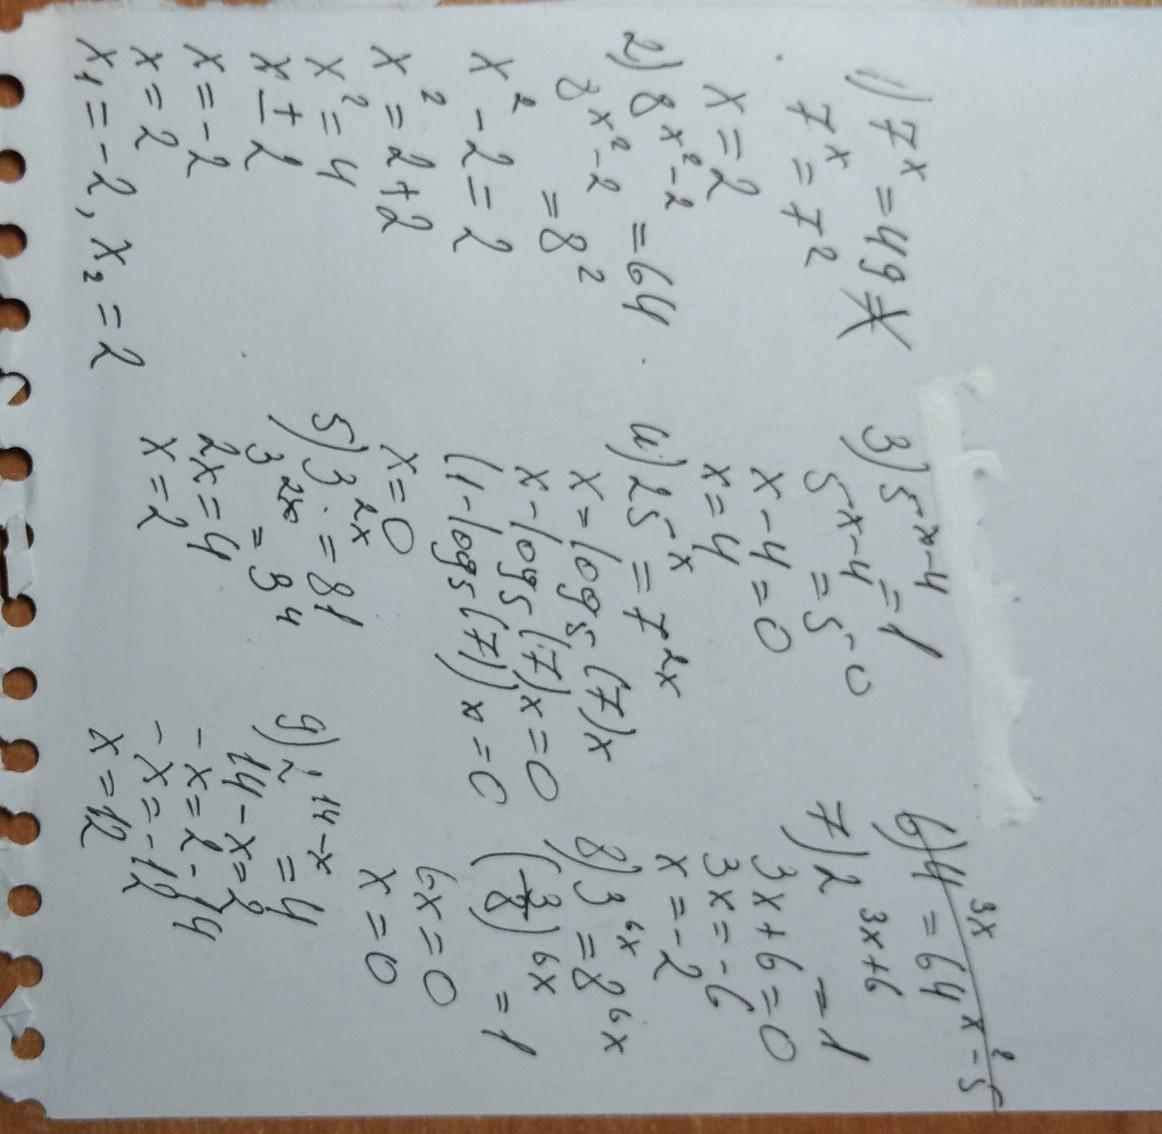 1) 7^x = 49
7^x = 7^2
x = 2
2) 8^{x^2-2} = 64
8^{x^2-2} = 8^2
x^2 - 2 = 2
x^2 = 2 + 2
x^2 = 4
x ± 2
x = -2
x = 2
x_1 = -2, x_2 = 2
3) 5^{x-4} = 1
5^{x-4} = 5^0
x - 4 = 0
x = 4
4) 25^x = 7^{2x}
x = log_5(7)x
x - log_5(7)x = 0
(1 - log_5(7))x = 0
x = 0
5) 3^{2x} = 81
3^{2x} = 3^4
2x = 4
x = 2
6) 4^{3x} = 64^{x^2-5}
7) 2^{3x+6} = 1
3x + 6 = 0
3x = -6
x = -2
8) 3^{6x} = 8^{6x}
(3/8)^{6x} = 1
6x = 0
x = 0
9) 2^{14-x} = 4
14 - x = 2
-x = 2 - 14
-x = -12
x = 12